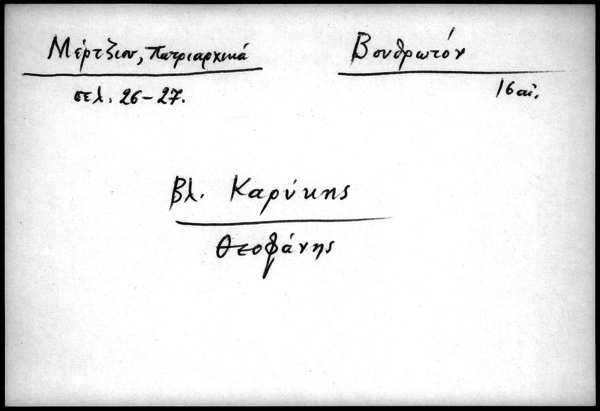 Μέρτζιου, Πατριαρχικά
Βουθρωτόν
σελ. 26-27.
16 αἰ.
Βλ. Καρύκης
Θεοφάνης